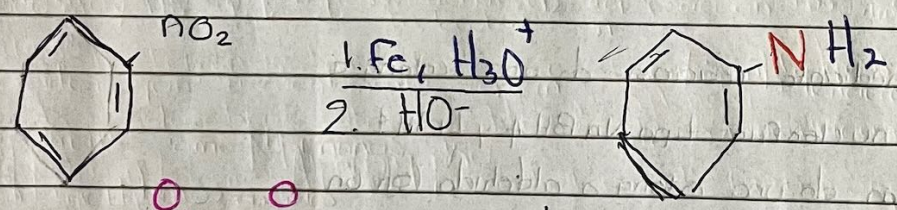 NO₂
1. Fe, H₃O⁺
2. HO⁻
NH₂